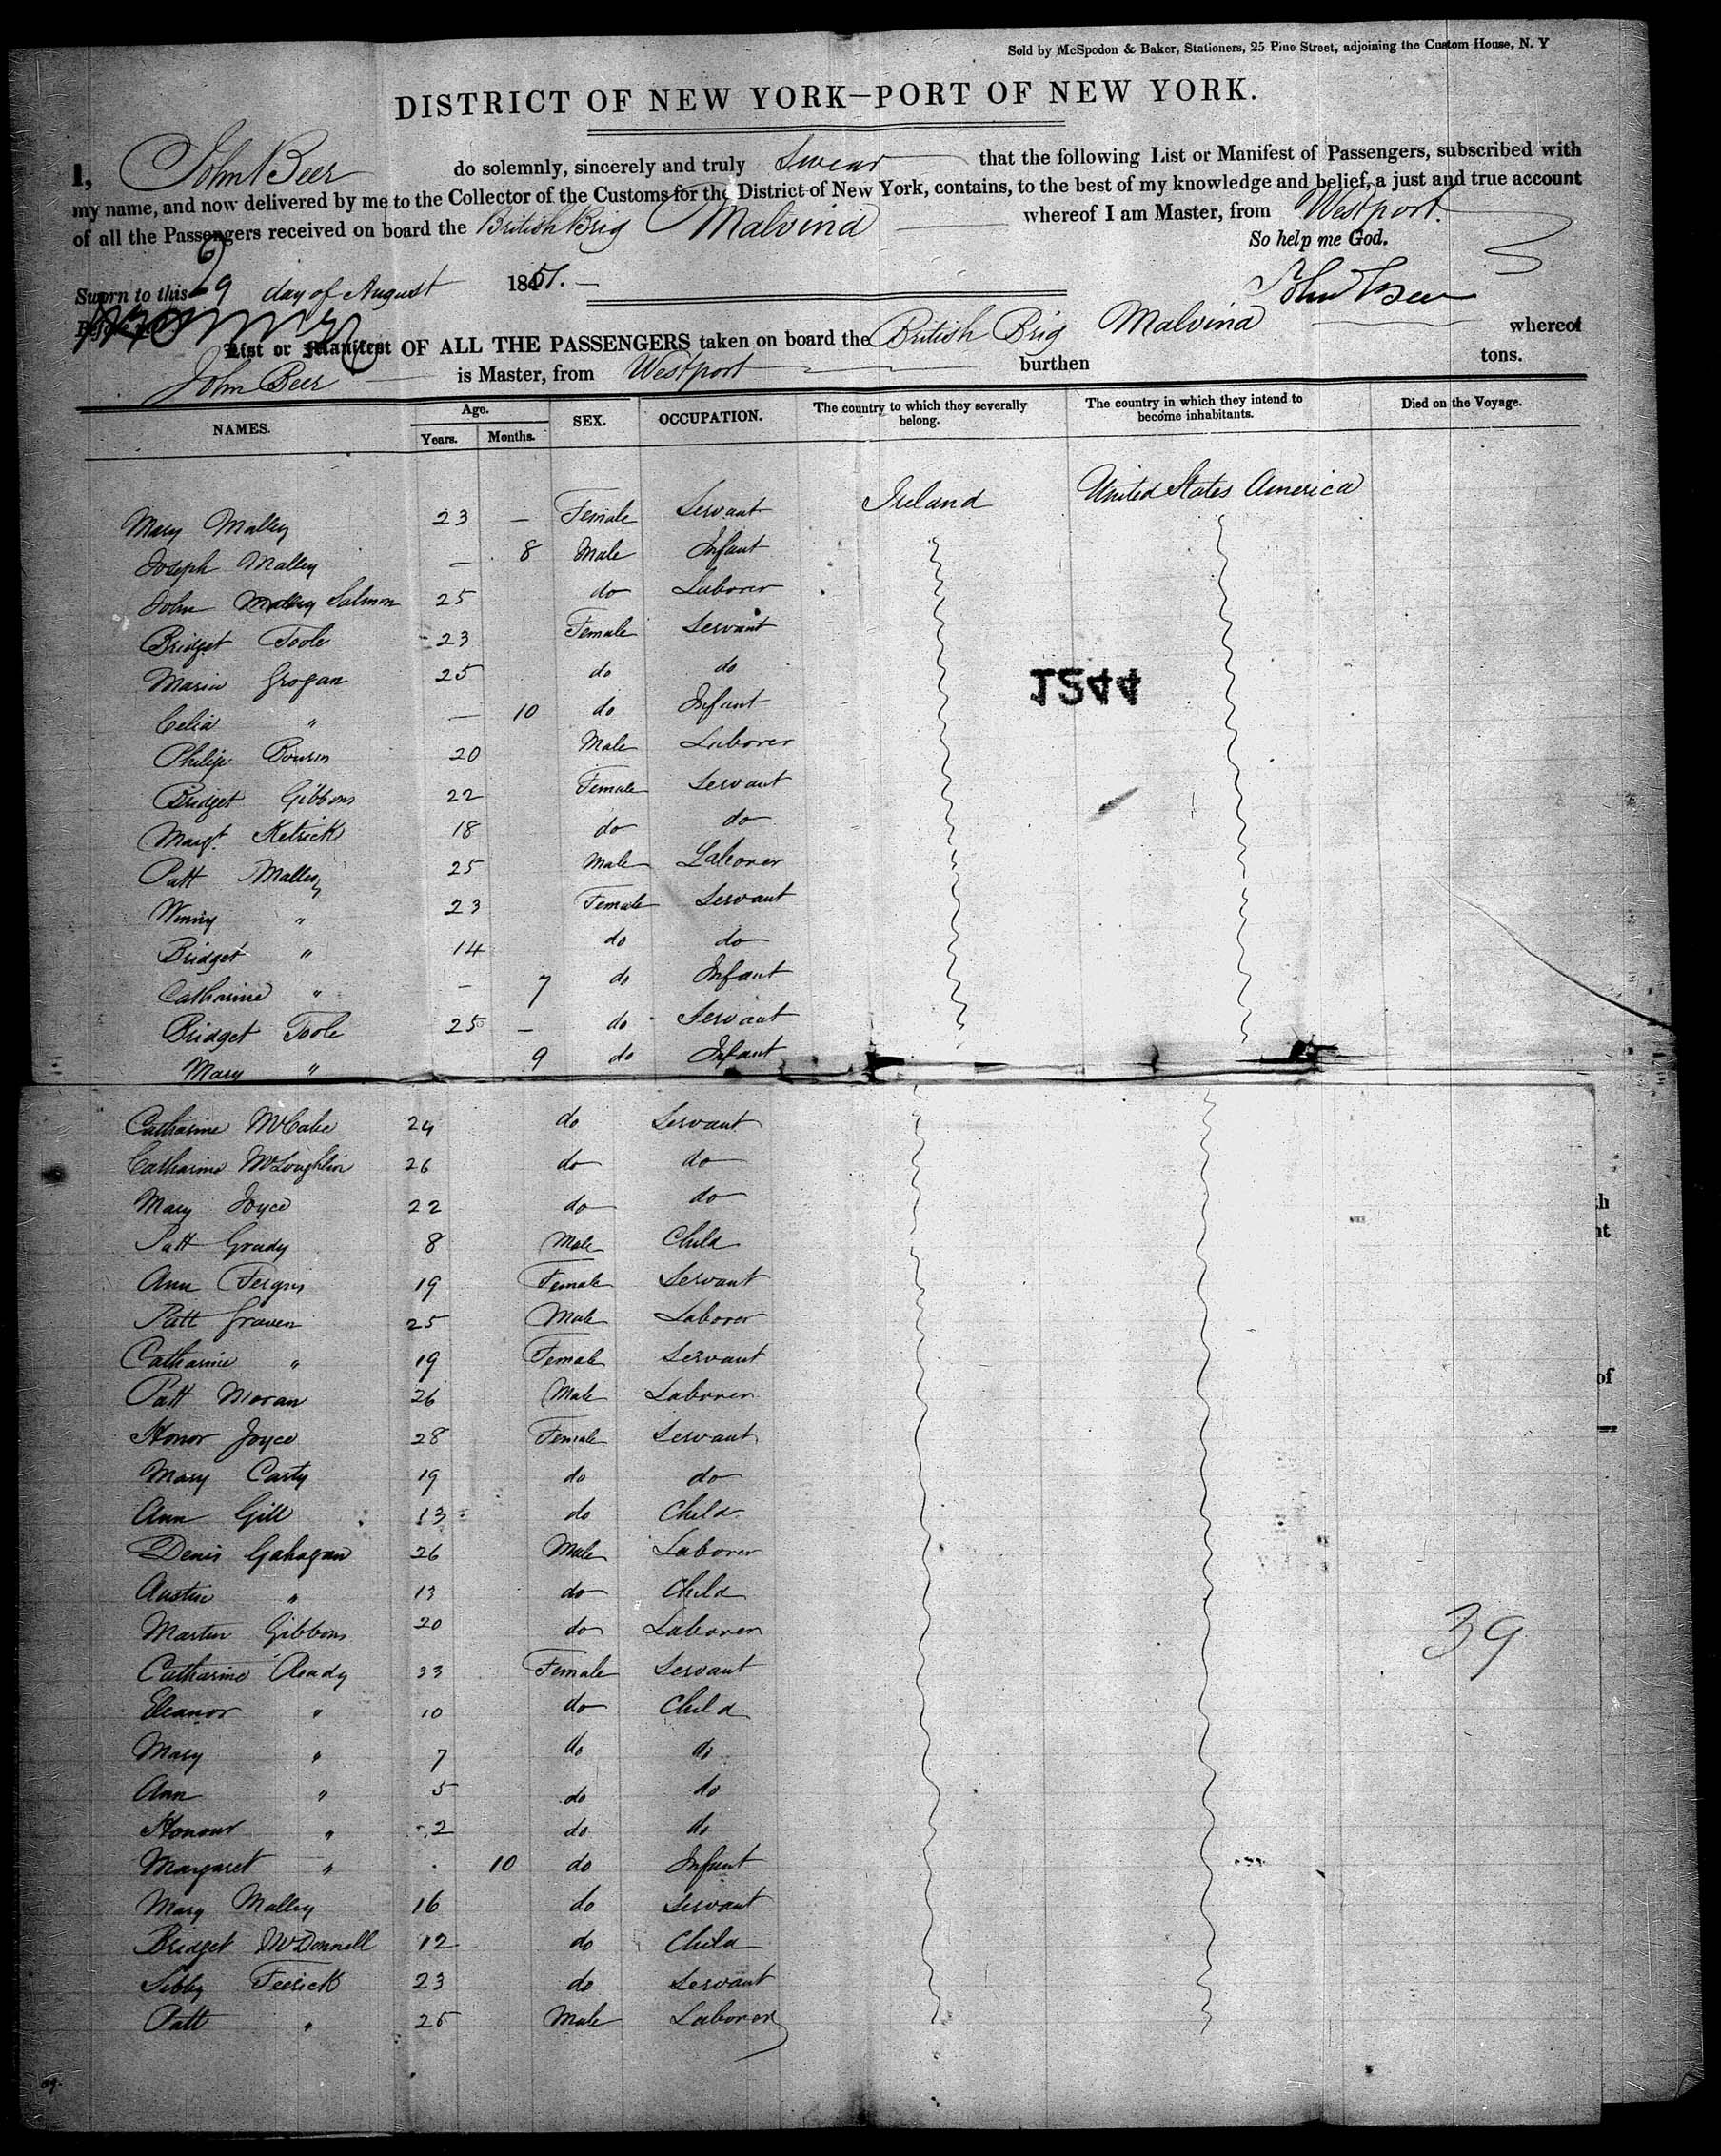 Sold by McSpedon & Baker, Stationers, 25 Pine Street, adjoining the Custom House, N. Y
DISTRICT OF NEW YORK—PORT OF NEW YORK.
I, John Beer do solemnly, sincerely and truly Swear that the following List or Manifest of Passengers, subscribed with
my name, and now delivered by me to the Collector of the Customs for the District of New York, contains, to the best of my knowledge and belief, a just and true account
of all the Passengers received on board the British Brig Malvina whereof I am Master, from Westport.
So help me God.
Sworn to this 9 day of August 1851.
John Beer
List or Manifest OF ALL THE PASSENGERS taken on board the British Brig Malvina whereof
John Beer is Master, from Westport burthen tons.
NAMES. Age. Years. Months. SEX. OCCUPATION. The country to which they severally belong. The country in which they intend to become inhabitants. Died on the Voyage.
Mary Malley 23 — Female Servant Ireland United States America
Joseph Malley — 8 Male Infant
John Malley Salmon 25 do Laborer
Bridget Toole 23 Female Servant
Maria Grogan 25 do do
1544
Celia " — 10 do Infant
Philip 20 Male Laborer
Bridget Gibbons 22 Female Servant
Margt. Ketrick 18 do do
Patt Malley 25 Male Laborer
Winny " 23 Female Servant
Bridget " 14 do do
Catharine " - 7 do Infant
Bridget Toole 25 — do Servant
Mary " 9 do Infant
Catharine McCabe 24 do Servant
Catharine McLoughlin 26 do do
Mary Joyce 22 do do
Patt Grady 8 Male Child
Ann Fergus 19 Female Servant
Patt Graven 25 Male Laborer
Catharine " 19 Female Servant
Patt Moran 26 Male Laborer
Honor Joyce 28 Female Servant
Mary Carty 19 do do
Ann Gill 13 do Child
Denis Gahagan 26 Male Laborer
Austin " 13 do Child
Martin Gibbons 20 do Laborer
39
Catharine Ready 33 Female Servant
Eleanor " 10 do Child
Mary " 7 do do
Ann " 5 do do
Honour " 2 do do
Margaret " 10 do Infant
Mary Malley 16 do Servant
Bridget McDonnell 12 do Child
Sibby Feerick 23 do Servant
Patt " 25 Male Laborer